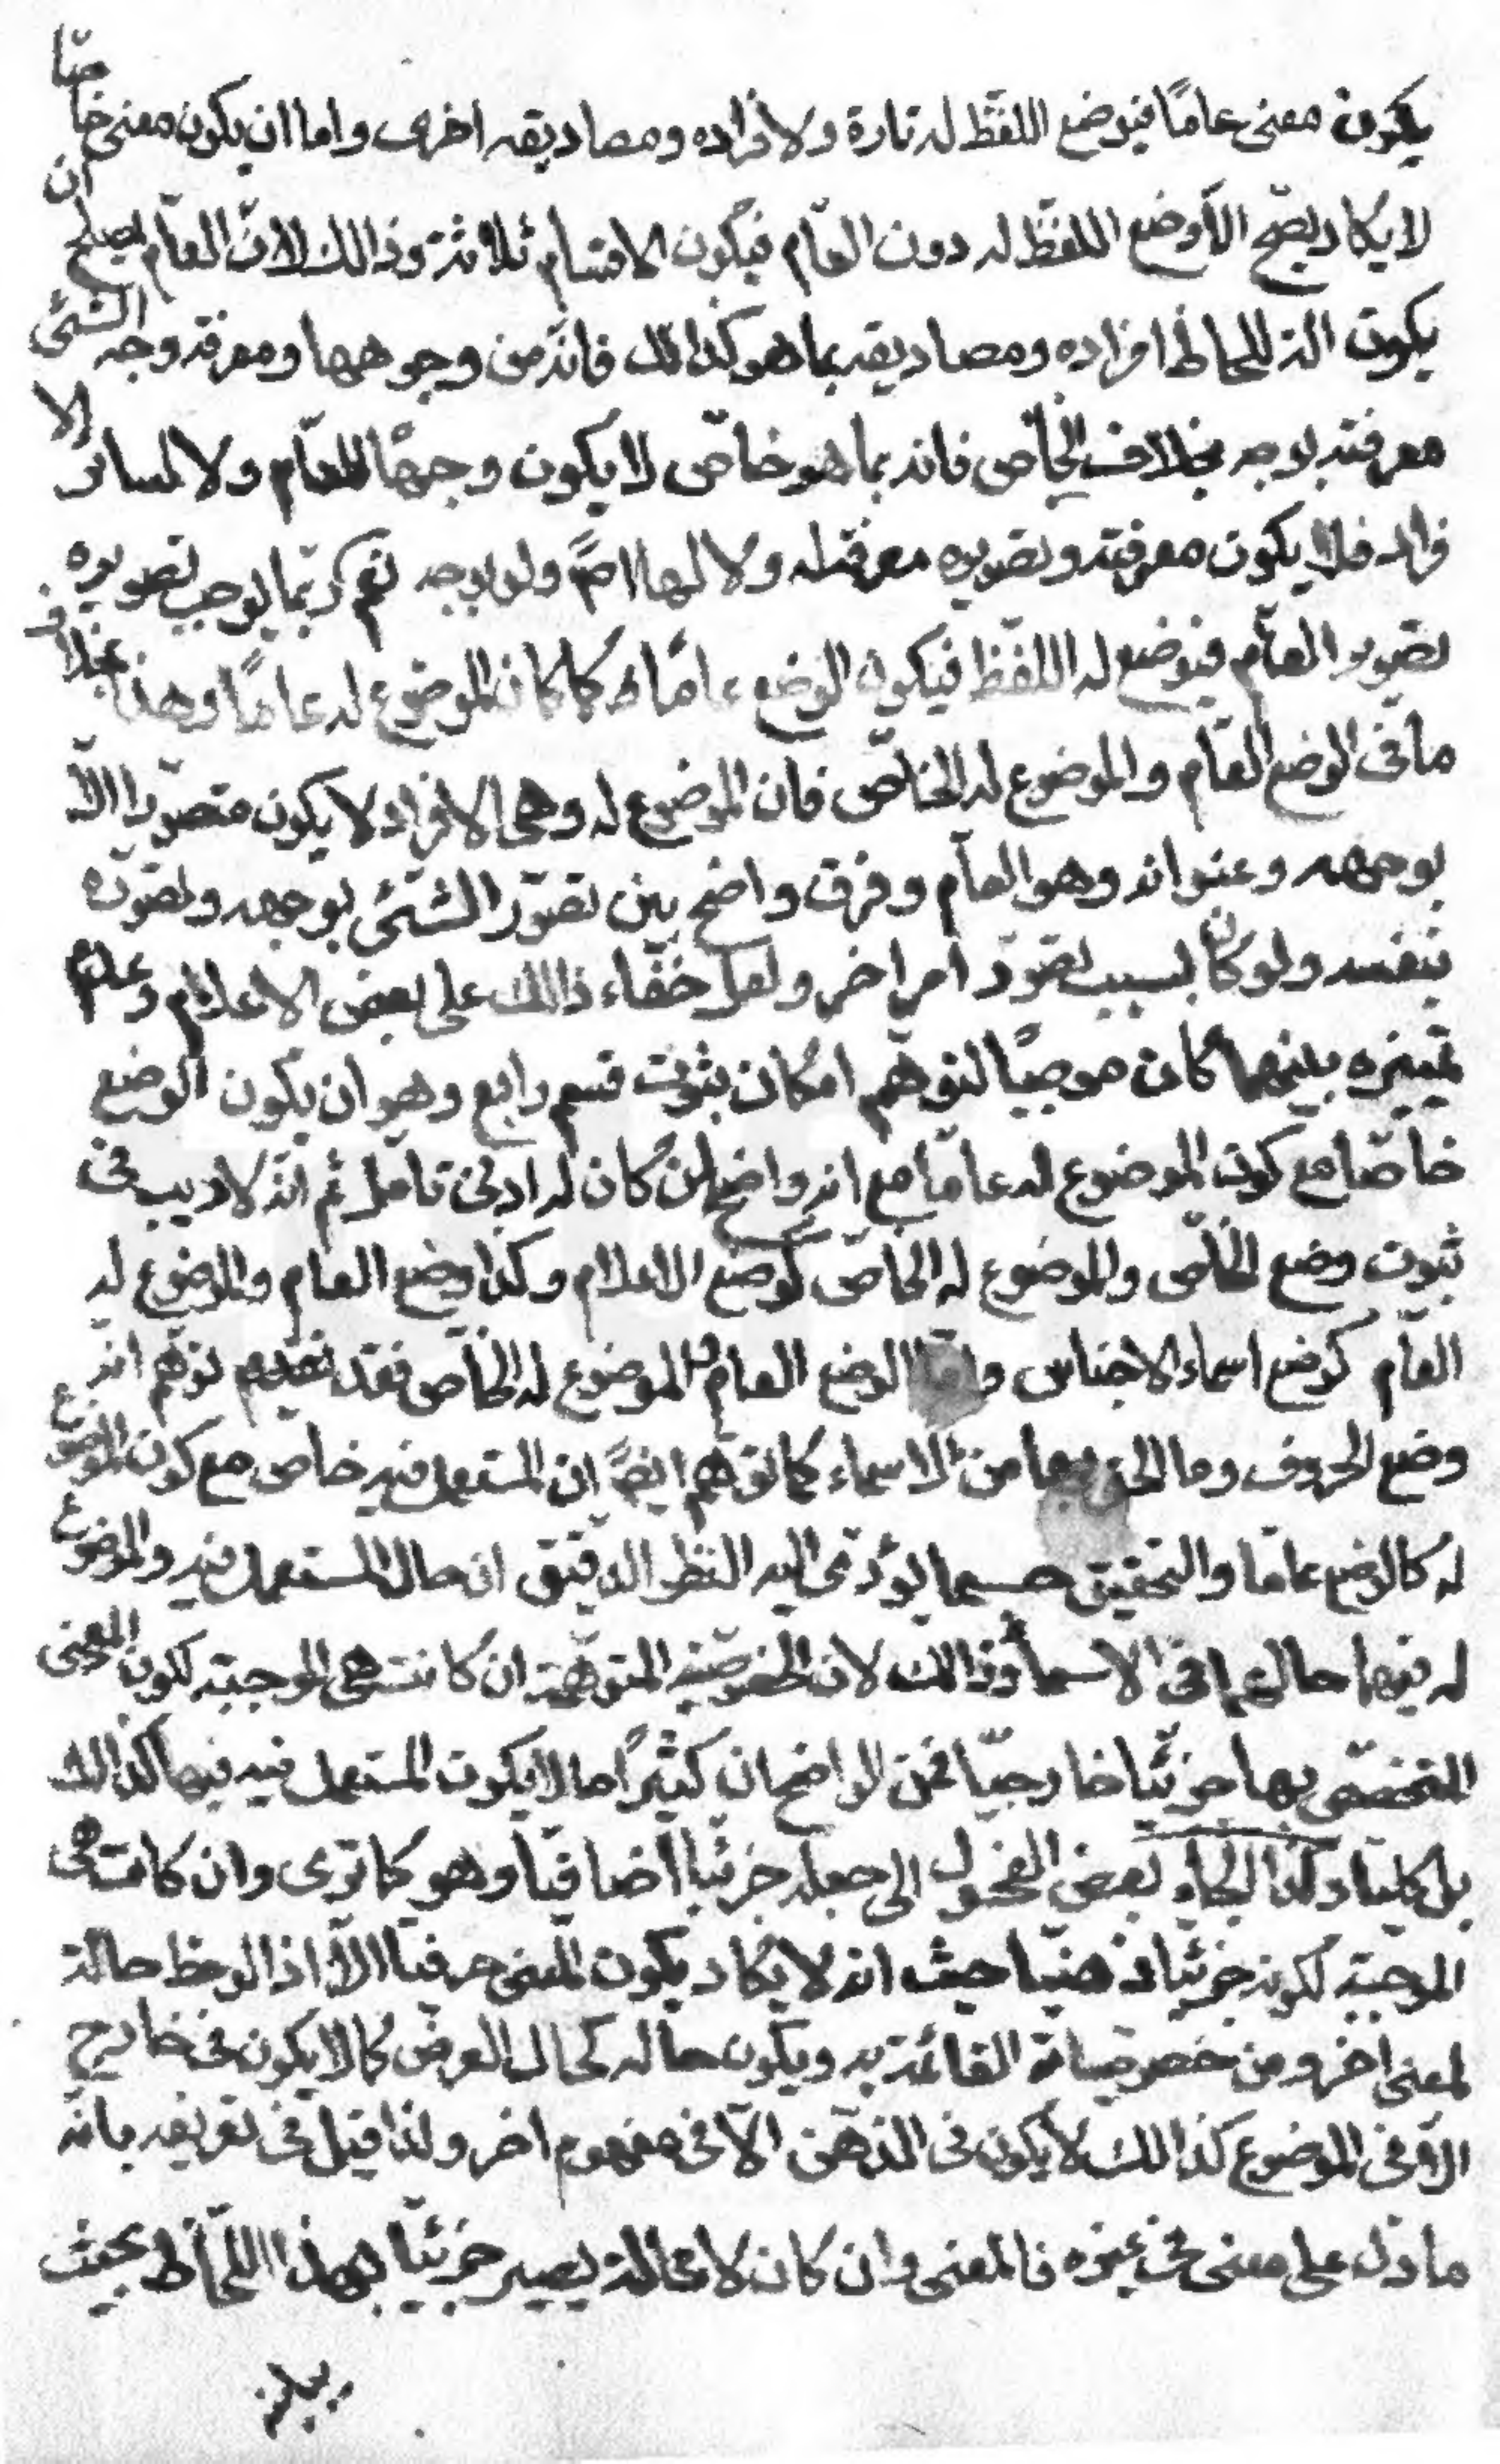 يكون معنى عامًا فيوضع اللفظ له تارة ولافراده ومصاديقه اخرى واما ان يكون معنى خاصّا
لا يكاد يصّح الّا وضع اللفظ له دون العامّ فيكون الاقسام ثلاثة وذالك لانّ العامّ يصلح ان
يكون الة للحاظ افراده ومصاديقه بما هو كذالك فانّه من وجوهها ومعرفة وجه الشئ
معرفته بوجه بخلاف الخاّص فانه بما هو خاصّ لا يكون وجهًا للعامّ ولا لسائر الا
فراد فلا يكون معرفته وتصويره معرفة له ولا لها اصً ولو بوجه نعم ربّما يوجب تصويره
تصوير العامّ فيوضع له اللفظ فيكون الوضع عامًا كما كان الموضوع له عامًا وهذا بخلاف
ما فى الوضع العامّ والموضوع له الخاصّ فان الموضوع له وهى الافراد لا يكون متصوّرا الّا
بوجهه وعنوانه وهو العامّ وفرق واضح بين تصوّر الشئ بوجهه وتصوّره
بنفسه ولو كان بسبب تصوّر امر اخر ولعل خفاء ذالك على بعض الاعلام وعدم
تمييزه بينهما كان موجبًا لتوهّم امكان ثبوت قسم رابع وهو ان يكون الوضع
خاصّا مع كون الموضوع له عامّا مع انه واضح لمن كان له ادنى تامّل ثم انّه لا ريب فى
ثبوت وضع الخاصّ والموضوع له الخاصّ كوضع الاعلام وكذا وضع العام والموضوع له
العامّ كوضع اسماء الاجناس وامّا الوضع العام والموضوع له الخاّص فقد تقدم توهّم انه
وضع الحروف وما الحق بها من الاسماء كما توهّم ايضً ان المستعمل فيه خاص مع كون الموضوع
له كالوضع عامّا والتحقيق حسبما يؤدّى اليه النظر الدقيق ان حال المستعمل فيه والموضوع
له فيها حالهما فى الاسماء وذالك لان الخصوصّية المتوهّمة ان كانت هى الموجبة لكون المعنى
المتخصّص بها جزئيّا خارجيّا فمن الواضح ان كثيرًا ما لا يكون المستعمل فيه فيها كذالك
بل كليّا ولذا التجأ بعض الفحول الى جعله جزئيّا اضافيّا وهو كما ترى وان كانت هى
الموجبة لكونه جزئيّا ذهنيّا حيث انه لا يكاد يكون المعنى حرفيّا الّا اذا لوحظ حالة
لمعنى اخر ومن خصوصياته القائمة به ويكون حاله كحال العرض كما لا يكون فى خارج
الّا فى الموضوع كذالك لا يكون فى الذهن الّا فى مفهوم اخر ولذا قيل فى تعريفه بانّه
ما دل على معنى فى غيره فالمعنى وان كان لا محالة يصير جزئيّا بهذا اللحاظ بحيث